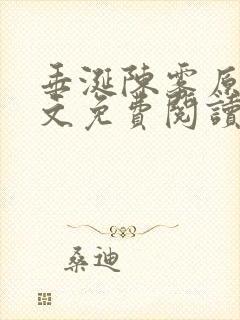 垂涎陳雾原
文免費閱讀
桑迪